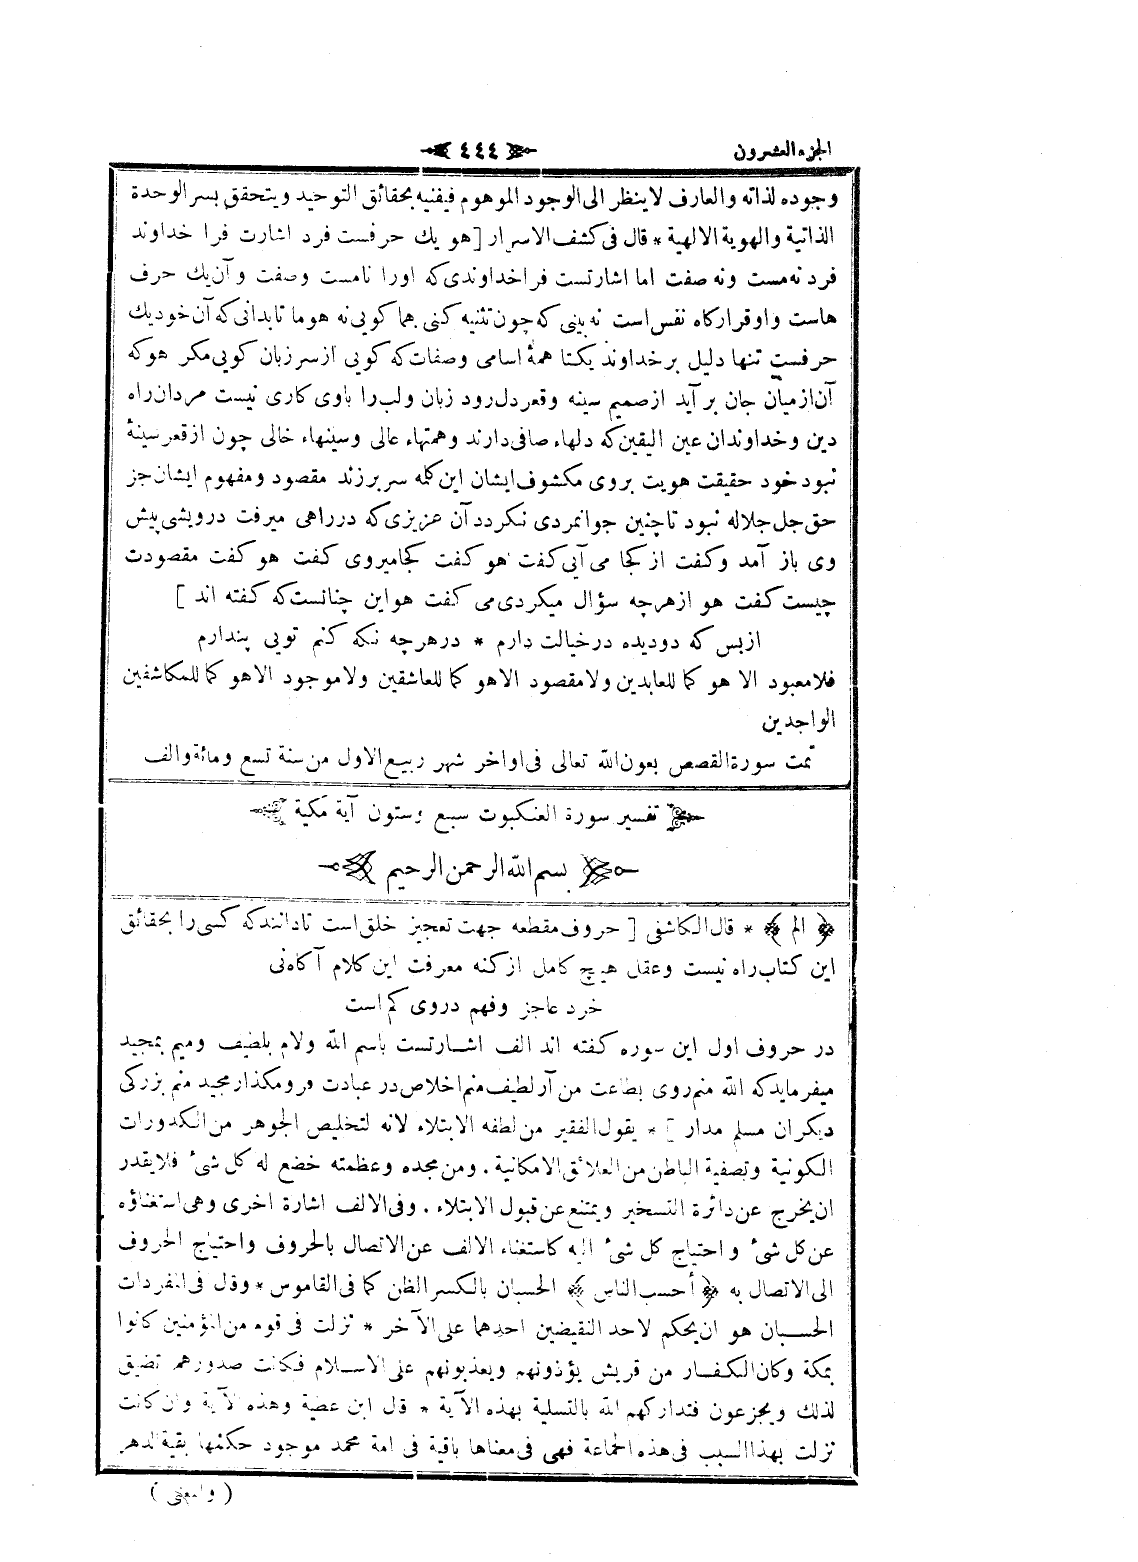 الجزء العشرون
٤٤٤
وجوده لذاته والعارف لاينظر الى الوجود الموهوم فيفنيه بحقائق التوحيد ويتحقق بسر الوحدة
الذاتية والهوية الالهية * قال فى كشف الاسرار [هو يك حرفست فرد اشارت فرا خداوند
فرد نه مست ونه صفت اما اشارتست فرا خداوندى كه اورا نامست وصفت وآن يك حرف
هاست واوقراركاه نفس است نه بينى كه چون تثنيه كنى هما كويى نه هوما تابدانى كه آن خوديك
حرفست تنها دليل بر خداوند يكتا همۀ اسامى وصفات كه كويى از سر زبان كويى مكر هوكه
آن از ميان جان بر آيد از صميم سينه وقعر دل رود زبان ولب را باوى كارى نيست مردان راه
دين وخداوندان عين اليقين كه دلهاء صافى دارند وهمتهاء عالى وسينهاء خالى چون از قعر سينۀ
نبود خود حقيقت هويت بروى مكشوف ايشان اين كله سر بر زند مقصود ومفهوم ايشان جز
حق جل جلاله نبود تاچنين جوانمردى نكردد آن عزيزى كه در راهى ميرفت درويشى پيش
وى باز آمد وكفت از كجا مى آيى كفت هو كفت كجاميروى كفت هو كفت مقصودت
چيست كفت هو از هرچه سؤال ميكردى مى كفت هو اين چنانست كه كفته اند ]
از بس كه دوديده در خيالت دارم * در هرچه نكه كنم تويى پندارم
فلا معبود الا هو كما للعابدين ولا مقصود الا هو كما للعاشقين ولا موجود الا هو كما للمكاشفين
الواجدين
تمت سورة القصص بعون الله تعالى فى اواخر شهر ربيع الاول من سنة تسع ومائة والف
تفسير سورة العنكبوت سبع وستون آية مكية
بسم الله الرحمن الرحيم
﴿ الم ﴾ * قال الكاشفى [ حروف مقطعه جهت تعجيز خلق است تادانند كه كسى را بحقائق
اين كتاب راه نيست وعقل هيچ كامل از كنه معرفت اين كلام آكاه نى
خرد عاجز وفهم دروى كم است
در حروف اول اين سوره كفته اند الف اشارتست باسم الله ولام بلطيف وميم بمجيد
ميفرمايد كه الله منم روى بطاعت من آر لطيف منم اخلاص در عبادت فرومكذار مجيد منم بزركى
ديكران مسلم مدار ] * يقول الفقير من لطفه الابتلاء لانه لتخليص الجوهر من الكدورات
الكونية وتصفية الباطن من العلائق الامكانية . ومن مجده وعظمته خضع له كل شىء فلا يقدر
ان يخرج عن دائرة التسخير ويمتنع عن قبول الابتلاء . وفى الالف اشارة اخرى وهى استغناؤه
عن كل شىء واحتياج كل شىء اليه كاستغناء الالف عن الاتصال بالحروف واحتياج الحروف
الى الاتصال به ﴿ أحسب الناس ﴾ الحسبان بالكسر الظن كما فى القاموس * وقال فى المفردات
الحسبان هو ان يحكم لاحد النقيضين احدهما على الآخر * نزلت فى قوم من المؤمنين كانوا
بمكة وكان الكفار من قريش يؤذونهم ويعذبونهم على الاسلام فكانت صدورهم تضيق
لذلك ويجزعون فتداركهم الله بالتسلية بهذه الآية * قال ابن عطية وهذه الآية وان كانت
نزلت بهذا السبب فى هذه الجماعة فهى فى معناها باقية فى امة محمد موجود حكمها بقية الدهر
( والمعنى )